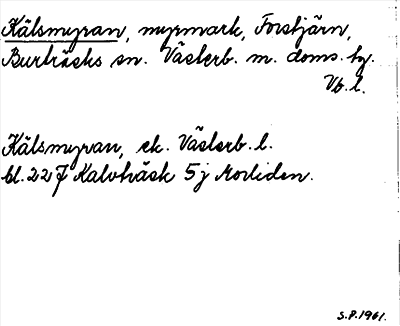 Kälsmyran, myrmark, Forstjärn,
Burträsks sn. Västerb. m. doms. hg.
Vb. l.
Kälsmyran, ek. Västerb. l.
bl. 22 J Kalvträsk 5j Morliden.
S.P. 1961.